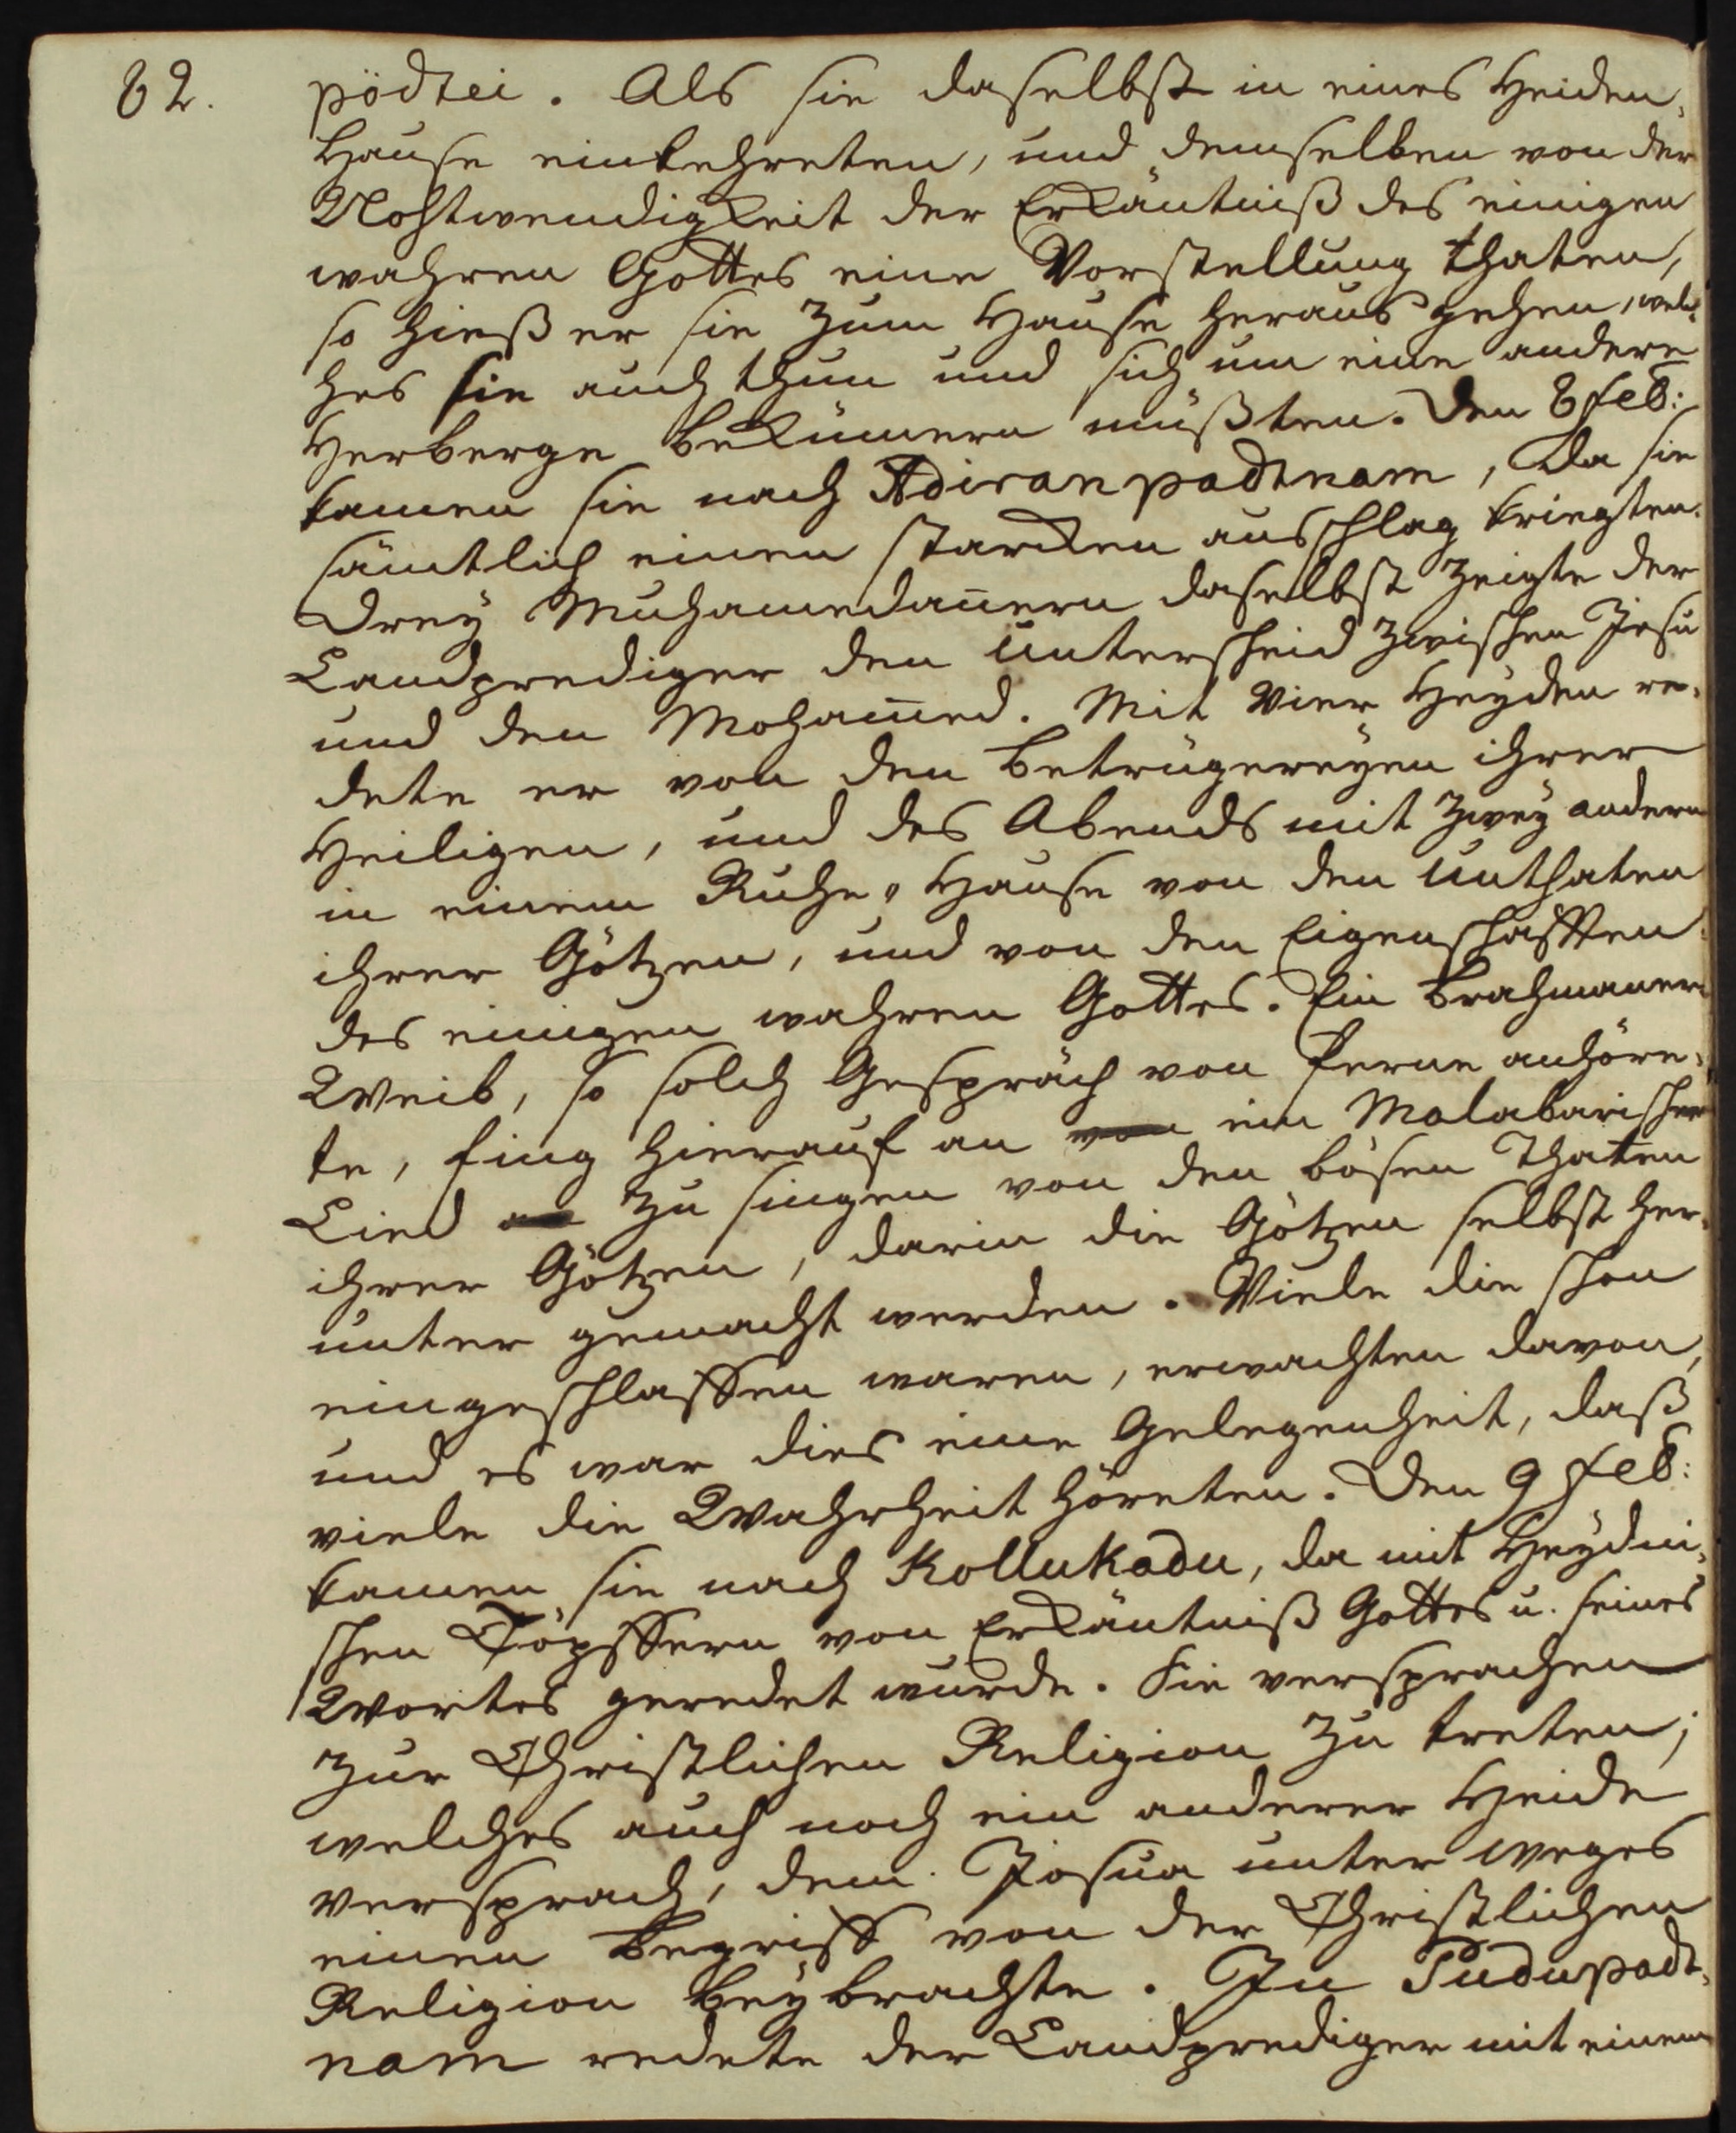 82.
pödtei. Als sie daselbst in eines Heiden-
Hause einkehreten, und demselben von der
Nohtwendigkeit der Erkäntniß des einigen
wahren Gottes eine Vorstellung thaten,
so hieß er sie zum Hause heraus gehen, wel-
hes sie auch thun und sich um eine andere
Herberge bekümern müßten. Den 8 Feb:
kamen sie nach Adiranpadtnam, da sie
sämtlich einen starcken ausschlag kriegten.
Drey Muhamedanern daselbst zeigte der
Landprediger den Unterscheid zwischen Jesu
und den Moham̄ed. Mit vier Heyden re-
dete er von den Betrügereyen ihrer
Heiligen, und des Abends mit zwey andern
in einem Ruhe-Hause von den Unthaten
ihrer Götzen, und von den Eigenschafften
des einigen wahren Gottes. Ein Brahmaner
Weib, so solch Gespräch von ferne anhöre-
te, fing hierauf an von ein Malabarischen
Lied zu singen von den bösen Thaten
ihrer Götzen, darin die Götzen selbst her-
unter gemacht werden. Viele die schon
eingeschlaffen waren, erwachten davon,
und es war dies eine Gelegenheit, daß
viele die Wahrheit höreten. Den 9 Feb:
kamen sie nach Kollukadu, da mit Heydni-
schen Töpffern von Erkäntniß Gottes u. seines
Wortes geredet wurde. Sie versprachen
zur Christlichen Religion zu treten;
welches auch noch ein anderer Heide
versprach, dem Josua unter weges
einen Begriff von der Christlichen
Religion beybrachte. In Pudupadt-
nam redete der Landprediger mit einem